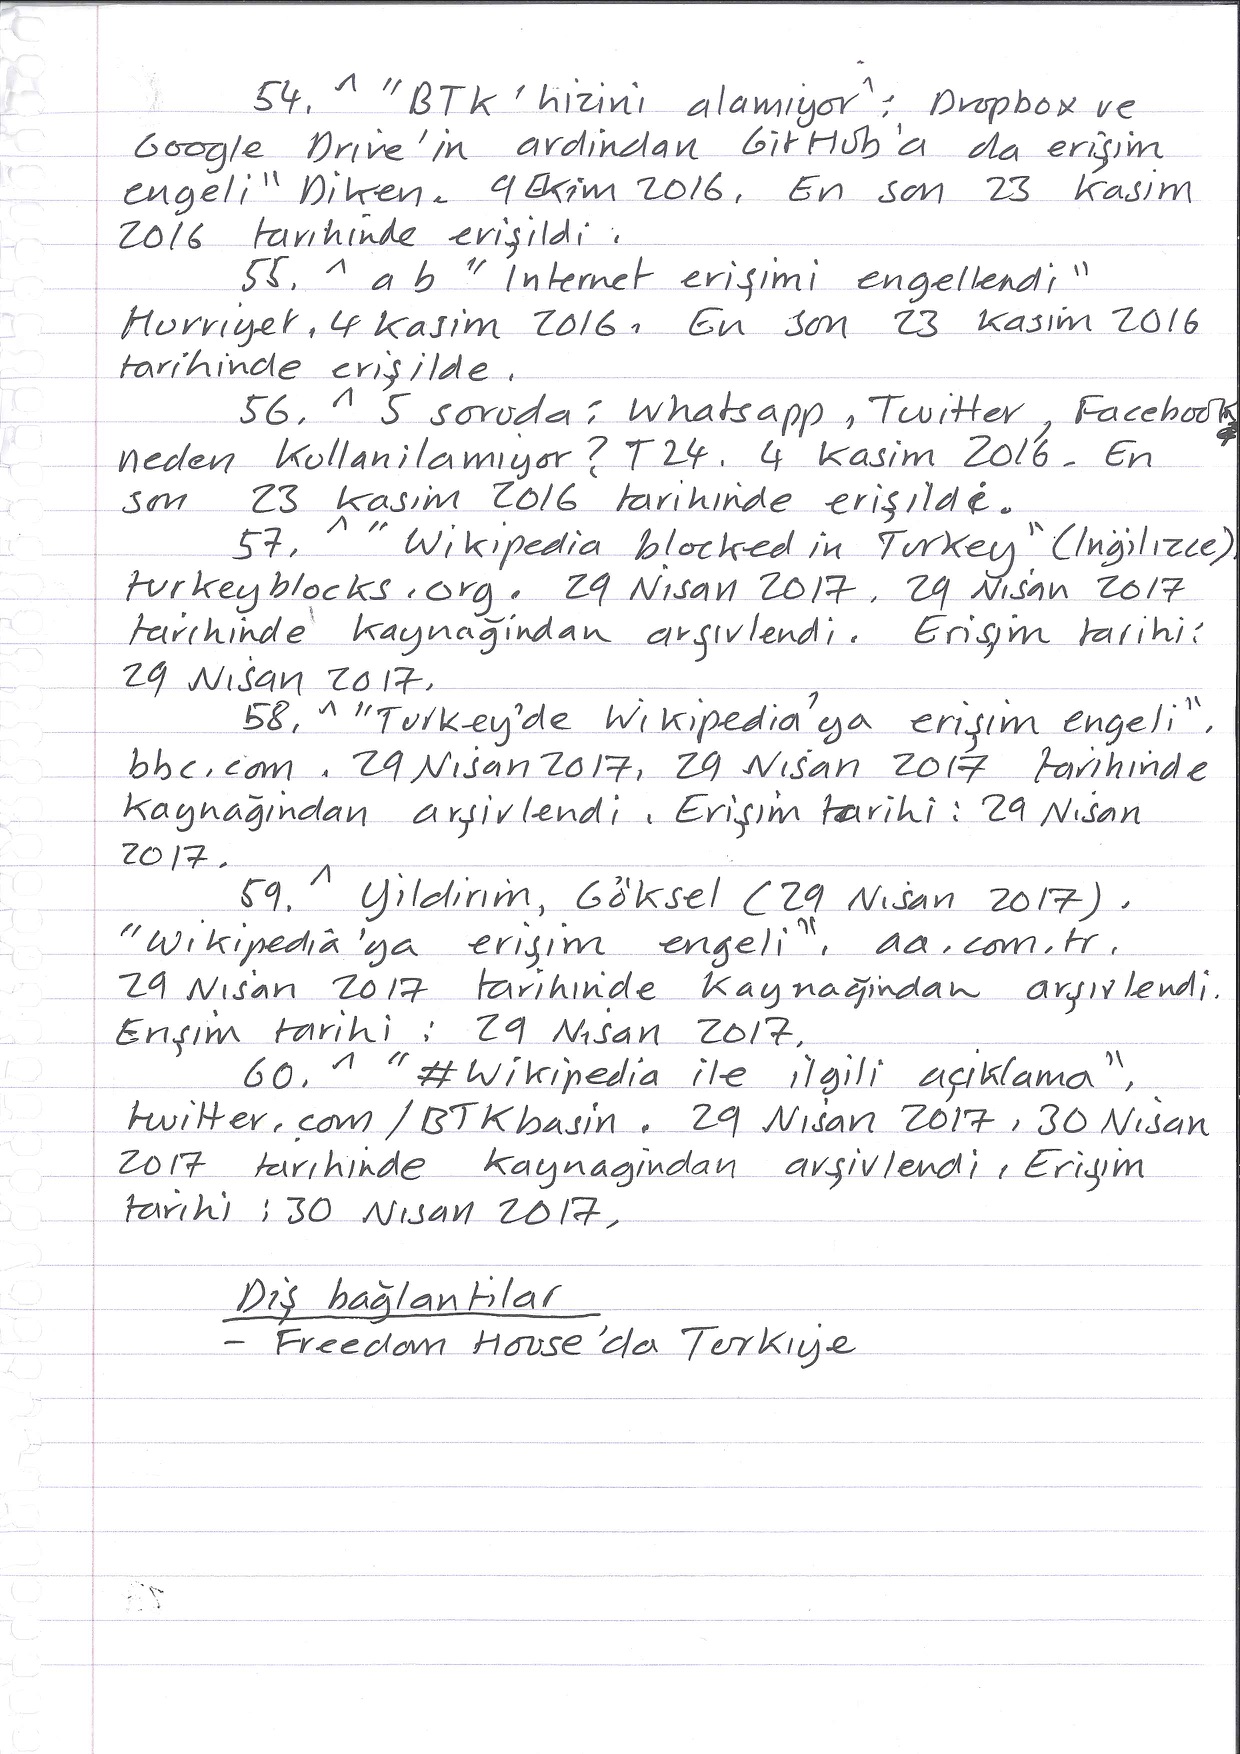 54. ^ "BTK 'hizini alamiyor^: Dropbox ve
Google Drive'in ardindan GitHub'a da erişim
engeli" Diken. 9 Ekim 2016. En son 23 Kasim
2016 tarihinde erişildi.
55. ^ a b "Internet erişimi engellendi"
Hurriyet. 4 Kasim 2016. En son 23 Kasim 2016
tarihinde erişilde.
56. ^ 5 soruda: Whatsapp, Twitter, Facebook
neden kullanilamiyor? T24. 4 Kasim 2016. En
son 23 Kasim 2016 tarihinde erişildi.
57. ^ "Wikipedia blocked in Turkey" (Inğilizce)
turkeyblocks.org. 29 Nisan 2017. 29 Nisan 2017
tarihinde kaynağindan arşivlendi. Erişim tarihi:
29 Nisan 2017.
58. ^ "Turkey'de Wikipedia'ya erişim engeli".
bbc.com. 29 Nisan 2017. 29 Nisan 2017 tarihinde
kaynağindan arşivlendi. Erişim tarihi: 29 Nisan
2017.
59. ^ Yildirim, Göksel (29 Nisan 2017).
"Wikipedia'ya erişim engeli". aa.com.tr.
29 Nisan 2017 tarihinde kaynağindan arşivlendi.
Erişim tarihi: 29 Nisan 2017.
60. ^ "#Wikipedia ile ilgili açiklama",
twitter.com/BTKbasin. 29 Nisan 2017, 30 Nisan
2017 tarihinde kaynagindan arşivlendi, Erişim
tarihi: 30 Nisan 2017,
Diş bağlantilar
- Freedom House'da Turkiye